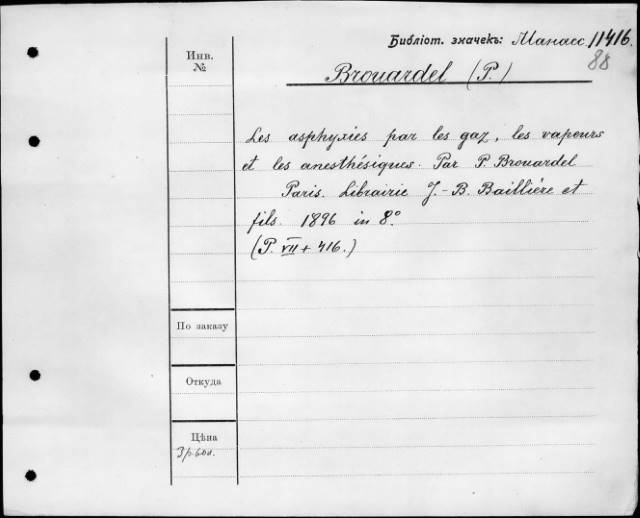 Библіот. значекъ: Манасс. 11416.
88
Инв. №
Brouardel (P.)
Les asphyxies par les gaz, les vapeurs
et les anesthésiques. Par P. Brouardel
Paris. Librairie J.-B. Baillière et
fils. 1896 in 8°.
(P. VII + 416.)
По заказу
Откуда
Цѣна
3 р. 60 к.